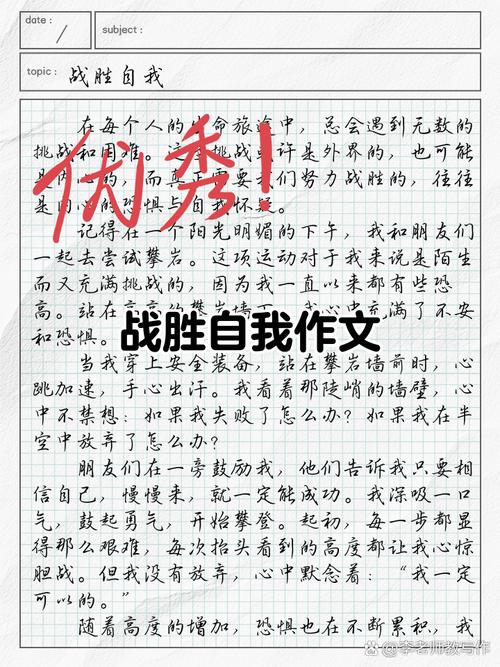 date:
subject:
topic: 战胜自我
在每个人的生命旅途中，总会遇到无数的
挑战和困难。这些挑战或许是外界的，也可能
是内心的，而真正需要我们努力战胜的，往往
是内心的恐惧与自我怀疑。
优秀!
记得在一个阳光明媚的下午，我和朋友们
一起去尝试攀岩。这项运动对于我来说是陌生
而又充满挑战的，因为我一直以来都有些恐
高。站在高高的攀岩墙下，我心中充满了不安
和恐惧。
战胜自我作文
当我穿上安全装备，站在攀岩墙前时，心
跳加速，手心出汗。我看着那陡峭的墙壁，心
中不禁想：如果我失败了怎么办？如果我在半
空中放弃了怎么办？
朋友们在一旁鼓励我，他们告诉我只要相
信自己，慢慢来，就一定能成功。我深吸一口
气，鼓起勇气，开始攀登。起初，每一步都显
得那么艰难，每次抬头看到的高度都让我心惊
胆战。但我没有放弃，心中默念着：“我一定
可以的。”
随着高度的增加，恐惧也在不断累积，我
李老师教写作